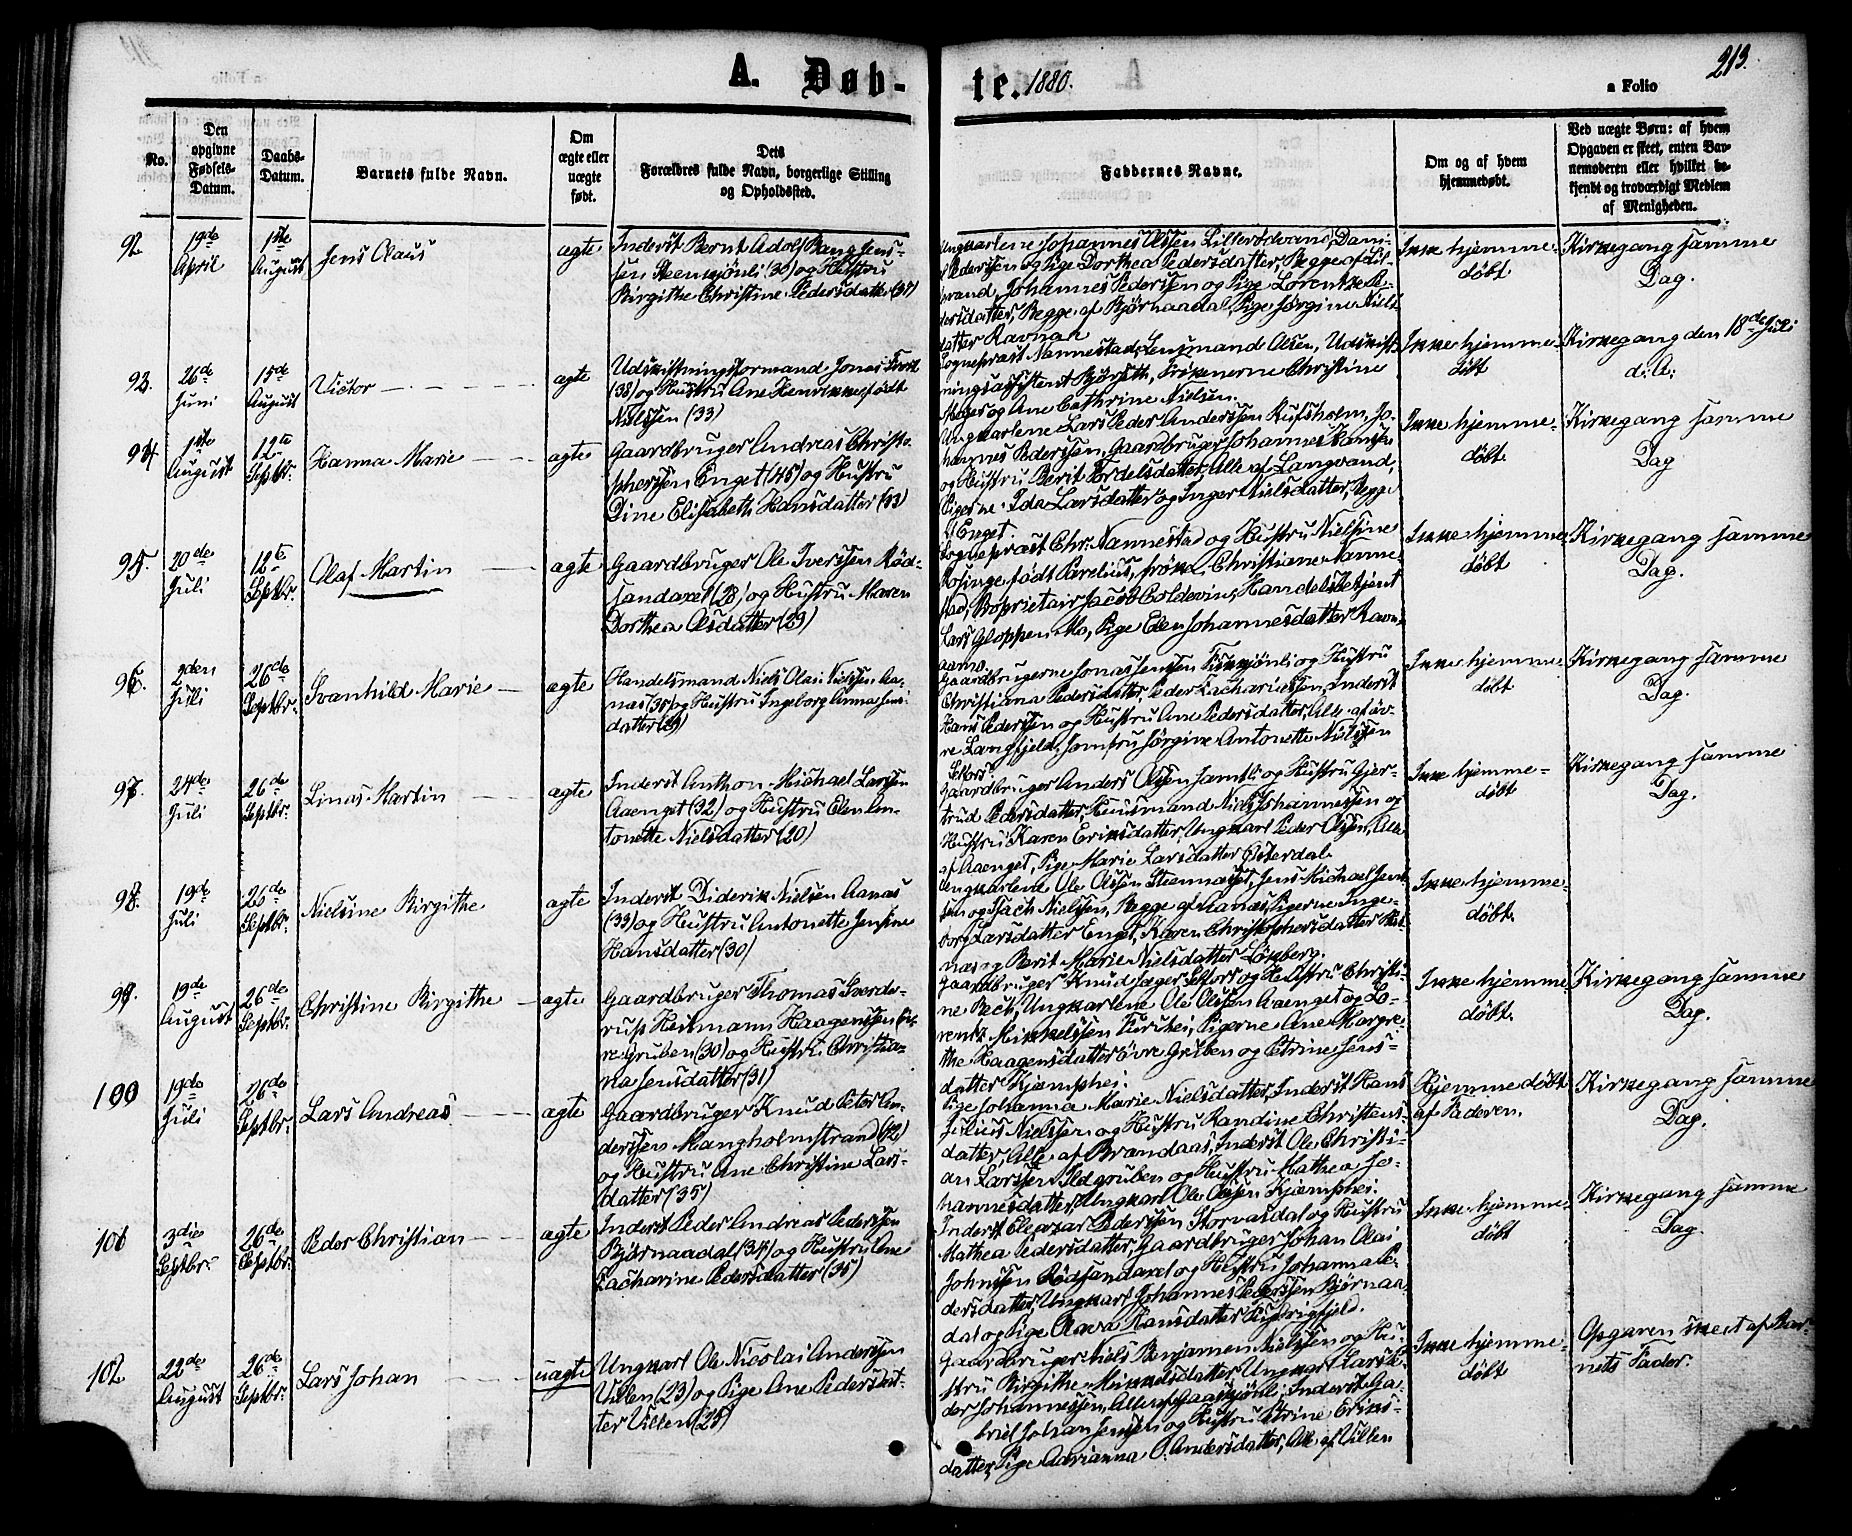 213.
A. Døb-
te. 1880.
a Folio
No.
Den
opgivne
Fødsels-
Datum.
Daabs-
Datum.
Barnets fulde Navn.
Om
ægte eller
uægte
født.
Dets
Forældres fulde Navn, borgerlige Stilling
og Opholdssted.
Faddernes Navne.
Om og af hvem
hjemmedøbt.
Ved uægte Børn: af hvem
Opgaven er skeet, enten Bar-
nemoderen eller hvilket be-
kjendt og troværdigt Medlem
af Menigheden.
92.
19de
April
1ste
August
Jens Olaus
ægte
Inderst Bernt Adolf Bang Jens-
sen (30) og Hustru
Birgithe Christine Pedersdatter (37)
Ungkarlene Johannes Olssen Lillerødvand, Dani-
Pederssen og Pige Dorthea Pedersdatter, Begge af Lil-
vand, Johannes Pederssen og Pige Lorentze Pe-
dersdatter, Begge af Bjørnaadal, Pige Jørgine Niels-
datter Ravnaa
Ikke hjemme-
døbt
Kirkegang samme
Dag.
93.
26de
Juni
15de
August
Victor
ægte
Udskiftningsformand Jonas
(38) og Hustru Ane Henrikke født
Nielssen (33)
Sogneprest Nannestad, Lensmand Olsen, Udskift-
ningsassistent Bjørseth, Frøknerne Christine
og Ane Cathrine Nielsen.
Ikke hjemme-
døbt
Kirkegang den 18de Juli
d. A.
94.
1ste
August
12te
Septbr.
Hanna Marie
ægte
Gaardbruger Andreas Christo-
pherssen Enget (45) og Hustru
Dine Elisabeth Hansdatter (33)
Ungkarlene Lars Peder Anderssen Rufsholm, Jo-
hannes Pederssen, Gaardbruger Johannes Hanssen
og Hustru Berit Fordelsdatter, Alle af Langvand,
Pigerne Ida Larsdatter og Inger Nielsdatter, Begge
af Enget.
Ikke hjemme-
døbt.
Kirkegang samme
Dag
95.
20de
Juli
12te
Septbr.
Olaf Martin
ægte
Gaardbruger Ole Iverssen Rød-
sandaxel (28) og Hustru Maren
Dorthea Olsdatter (29)
Sogneprest Chr. Nannestad og Hustru Nielsine
Rosinge født Parelius, Frøken Christiane Nanne-
stad, Proprietair Jacob Coldevin, Handelsbetjent
Lars Gloppen Mo, Pige Elen Johannesdatter Ravn-
aamo.
Ikke hjemme-
døbt
Kirkegang samme
Dag.
96.
2den
Juli
26de
Septbr.
Svanhild Marie
ægte
Handelsmand Niels Olai Nielssen Aa-
næs (35) og Hustru Ingeborg Anna Jens-
datter (29)
Gaardbrugerne Jonas Jenssen og Hustru
Christiana Pedersdatter, Peder Zachariassen, Inderst
Hans Pederssen og Hustru Ane Pedersdatter, Alle af øv-
re Langfjeld, Jomfru Jørgine Antonette Nielssen
Selfors.
Ikke hjemme-
døbt
Kirkegang samme
Dag.
97.
24de
Juli
26de
Septbr.
Linas Martin
ægte
Inderst Anthon Michael Larssen
Aaenget (32) og Hustru Elen An-
tonette Nielsdatter (20)
Gaardbruger Anders Olssen Jamtli og Hustru Gjer-
trud Pedersdatter, Huusmand Niels Johannessen og
Hustru Karen Eriksdatter, Ungkarl Peder Olssen, Alle
af Aaenget, Pige Marie Larsdatter Østerdal
Ikke hjemme-
døbt
Kirkegang samme
Dag.
98.
19de
Juli
26de
Septbr.
Nielsine Birgithe
ægte
Inderst Diderik Nielsen Aanæs
(33) og Hustru Antonette Jensine
Hansdatter (30)
Ungkarlene Ole Olssen Steennæset, Jens Michael Jens-
sen og Isach Nielssen, Begge af Aanæs, Pigerne Inge-
borg Larsdatter Enget, Karen Christophersdatter
næs og Berit Marie Nielsdatter Lønberg.
Ikke hjemme-
døbt.
99.
19de
August
26de
Septbr.
Christine Birgithe
ægte
Gaardbruger Thomas Sverde-
rup Heitmann Haagenssen øv-
re Gruben (30) og Hustru Christia-
na Jensdatter (31)
Gaardbruger Knud Jæger Selfors og Hustru Christi-
ne Bech, Ungkarlene Ole Olssen Aaenget og Lo-
rentz Mikkelssen Furuhei, Pigerne Ane Margre-
the Haagensdatter Øvre Gruben og Petrine Jens-
datter Kjæmphei.
Ikke hjemme-
døbt.
Kirkegang samme
Dag.
100
19de
Juli
26de
Septbr.
Lars Andreas
ægte
Gaardbruger Knud Peter An-
derssen Mangholmstrand (42)
og Hustru Ane Christine Lars-
datter (35)
Pige Johanna Marie Nielsdatter, Inderst Hans
Julius Nielssen og Hustru Randine Christens-
datter, Alle af Brandaas, Inderst Ole Christi-
an Larssen Ildgruben og Hustru Mathea Jo-
hannesdatter, Ungkarl Ole Olssen Kjæmphei.
Hjemmedøbt
af Faderen.
Kirkegang samme
Dag.
101
3die
Septbr.
26de
Septbr.
Peder Christian
ægte
Inderst Peder Andreas Pederssen
Bjørnaadal (34) og Hustru Ane
Zacharine Pedersdatter (35)
Inderst Eleazar Pederssen Storvasdal og Hustru
Mathea Pedersdatter, Gaardbruger Johan Olai
Johnssen Rødsandaxel og Hustru Johanna Pe-
dersdatter, Ungkarl Johannes Pederssen Bjørnaa-
dal og Pige Olava Hansdatter
Ikke hjemme-
døbt
Kirkegang samme
Dag.
102
22de
August
26de
Septbr.
Lars Johan
uægte
Ungkarl Ole Nicolai Anderssen
Villen (23) og Pige Ane Pedersdat-
ter Villen (25)
Gaardbruger Niels Benjamin Nielssen og Hu-
stru Birgithe Mikkelsdatter, Ungkarl Lars Pe-
der Johannessen, Alle af Gaasskjønli, Inderst Ga-
briel Johan Jenssen og Hustru Petrine Eriks-
datter, Pige Adrianna O. Andersdatter, Alle af Villen
Ikke hjemme-
døbt
Opgaven skeet af Bar-
nets Fader.